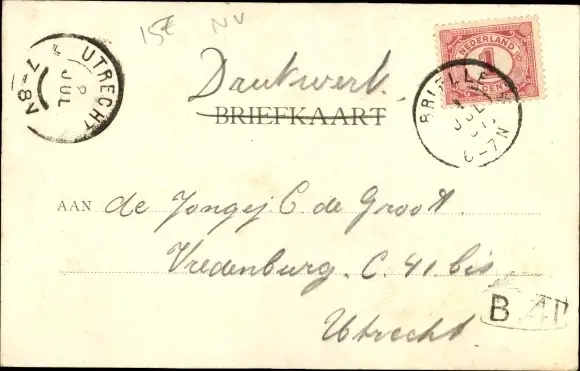 15€ NV
UTRECHT
2 JUL
7-8V
NEDERLAND
1
CENT
BRIELLE
JUL
6-7N
Drukwerk.
BRIEFKAART
AAN de Jongej C. de Groot.
Vredenburg. C. 41. bis
Utrecht.
B 41